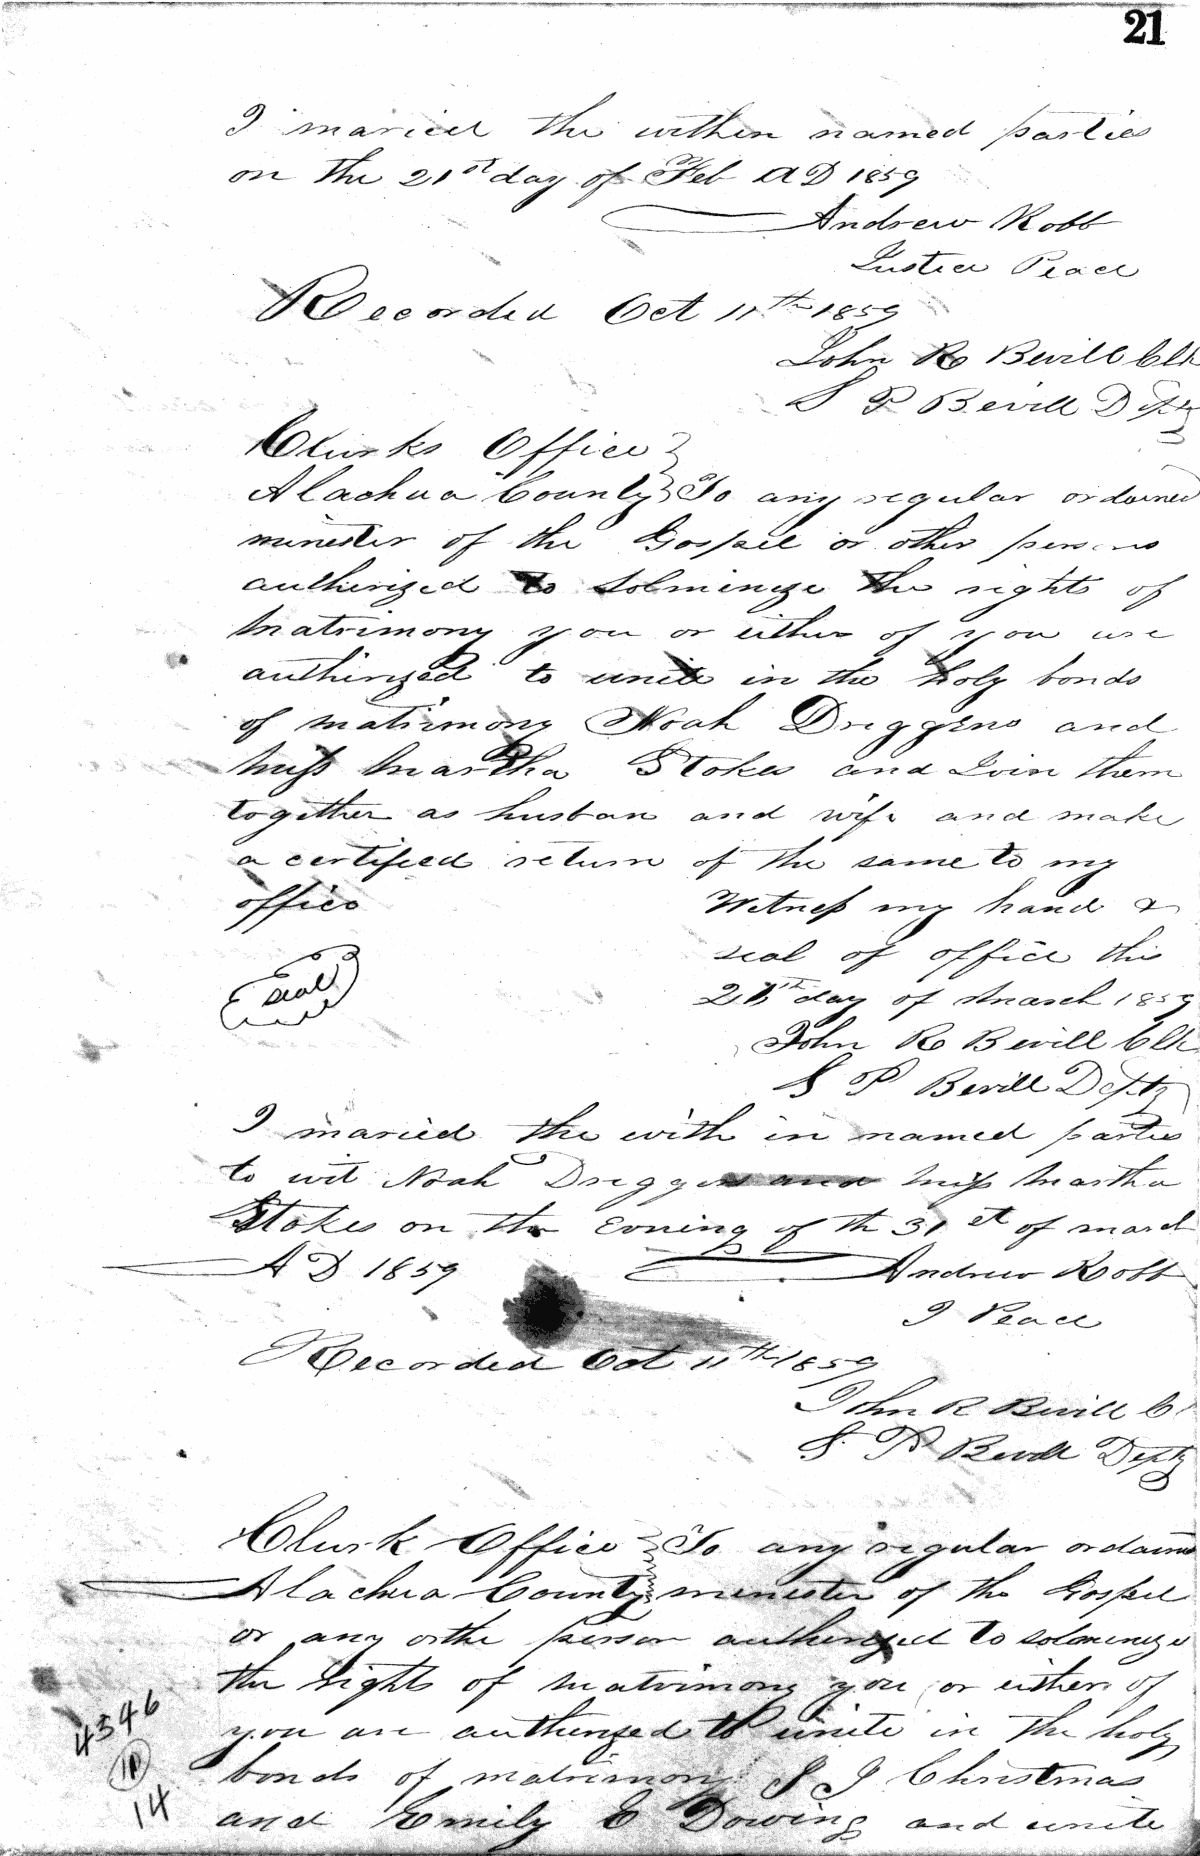 21
I maried the within named parties
on the 21st day of Feb AD 1859
Andrew Robb
Justice Peace
Recorded Oct 11th 1859
John R Bevill Clk
S P Bevill Dpty
Clurks Office
Alachua County To any regular ordained
minester of the Gospel or other persons
autherized to solminize the rights of
matrimony you or either of you are
autherized to unite in the holy bonds
of matrimony Noah Driggers and
Miss Martha Stokes and Join them
together as husban and wife and make
a certified return of the same to my
office Witness my hand &
seal of office this
seal day of March 1859
John R Bevill Clk
S P Bevill Depty
I maried the with in named parties
to wit Noah Driggers and Miss Martha
Stokes on the Evening of th 31 st of march
AD 1859 Andrew Robb
J Peace
Recorded Oct 11th 1859
John R Bevill Cl
S. P Bevill Depty
Clurk Office To any regular ordained
Alachua County minester of the Gospel
or any orthe person autherized to solminize
the rights of matrimony you or either of
you are autherized to unite in the holy
4546
bonds of matrimony J J Christmas
14
and Emily E Dowing and unite